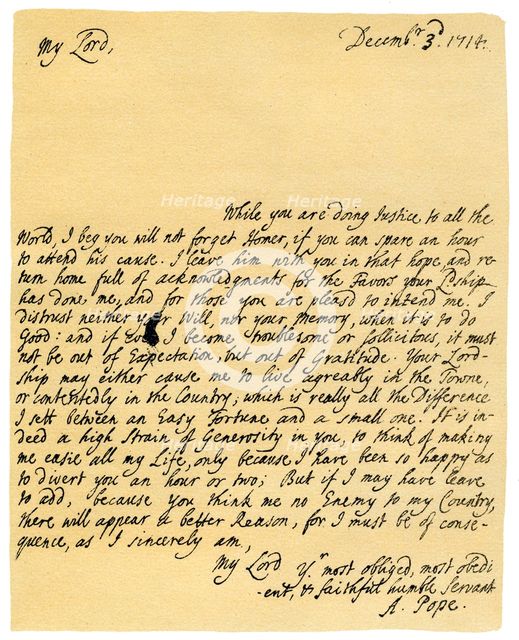 My Lord,
Decemb.r 3d. 1714.
While you are doing Justice to all the
World, I beg you will not forget Homer, if you can spare an hour
to attend his cause. I leave him with you in that hope, and re-
turn home full of acknowledgments for the Favors your Lship
has done me, and for those you are pleasd to intend me. I
distrust neither your Will, nor your Memory, when it is to do
Good: and if ever I become troublesome or sollicitous, it must
not be out of Expectation, but out of Gratitude. Your Lord-
ship may either cause me to live agreably in the Towne,
or contentedly in the Country; which is really all the Difference
I sett between an Easy Fortune and a small one. It is in-
deed a high Strain of Generosity in you, to think of making
me easie all my Life, only because I have been so happy as
to divert you an hour or two; But if I may have leave
to add, because you think me no Enemy to my Country,
there will appear a better Reason, for I must be of conse-
quence, as I sincerely am,
My Lord Yr most obliged, most obedi
-ent, & faithful humble Servant
A. Pope.
Heritage
Heritage
Heritage